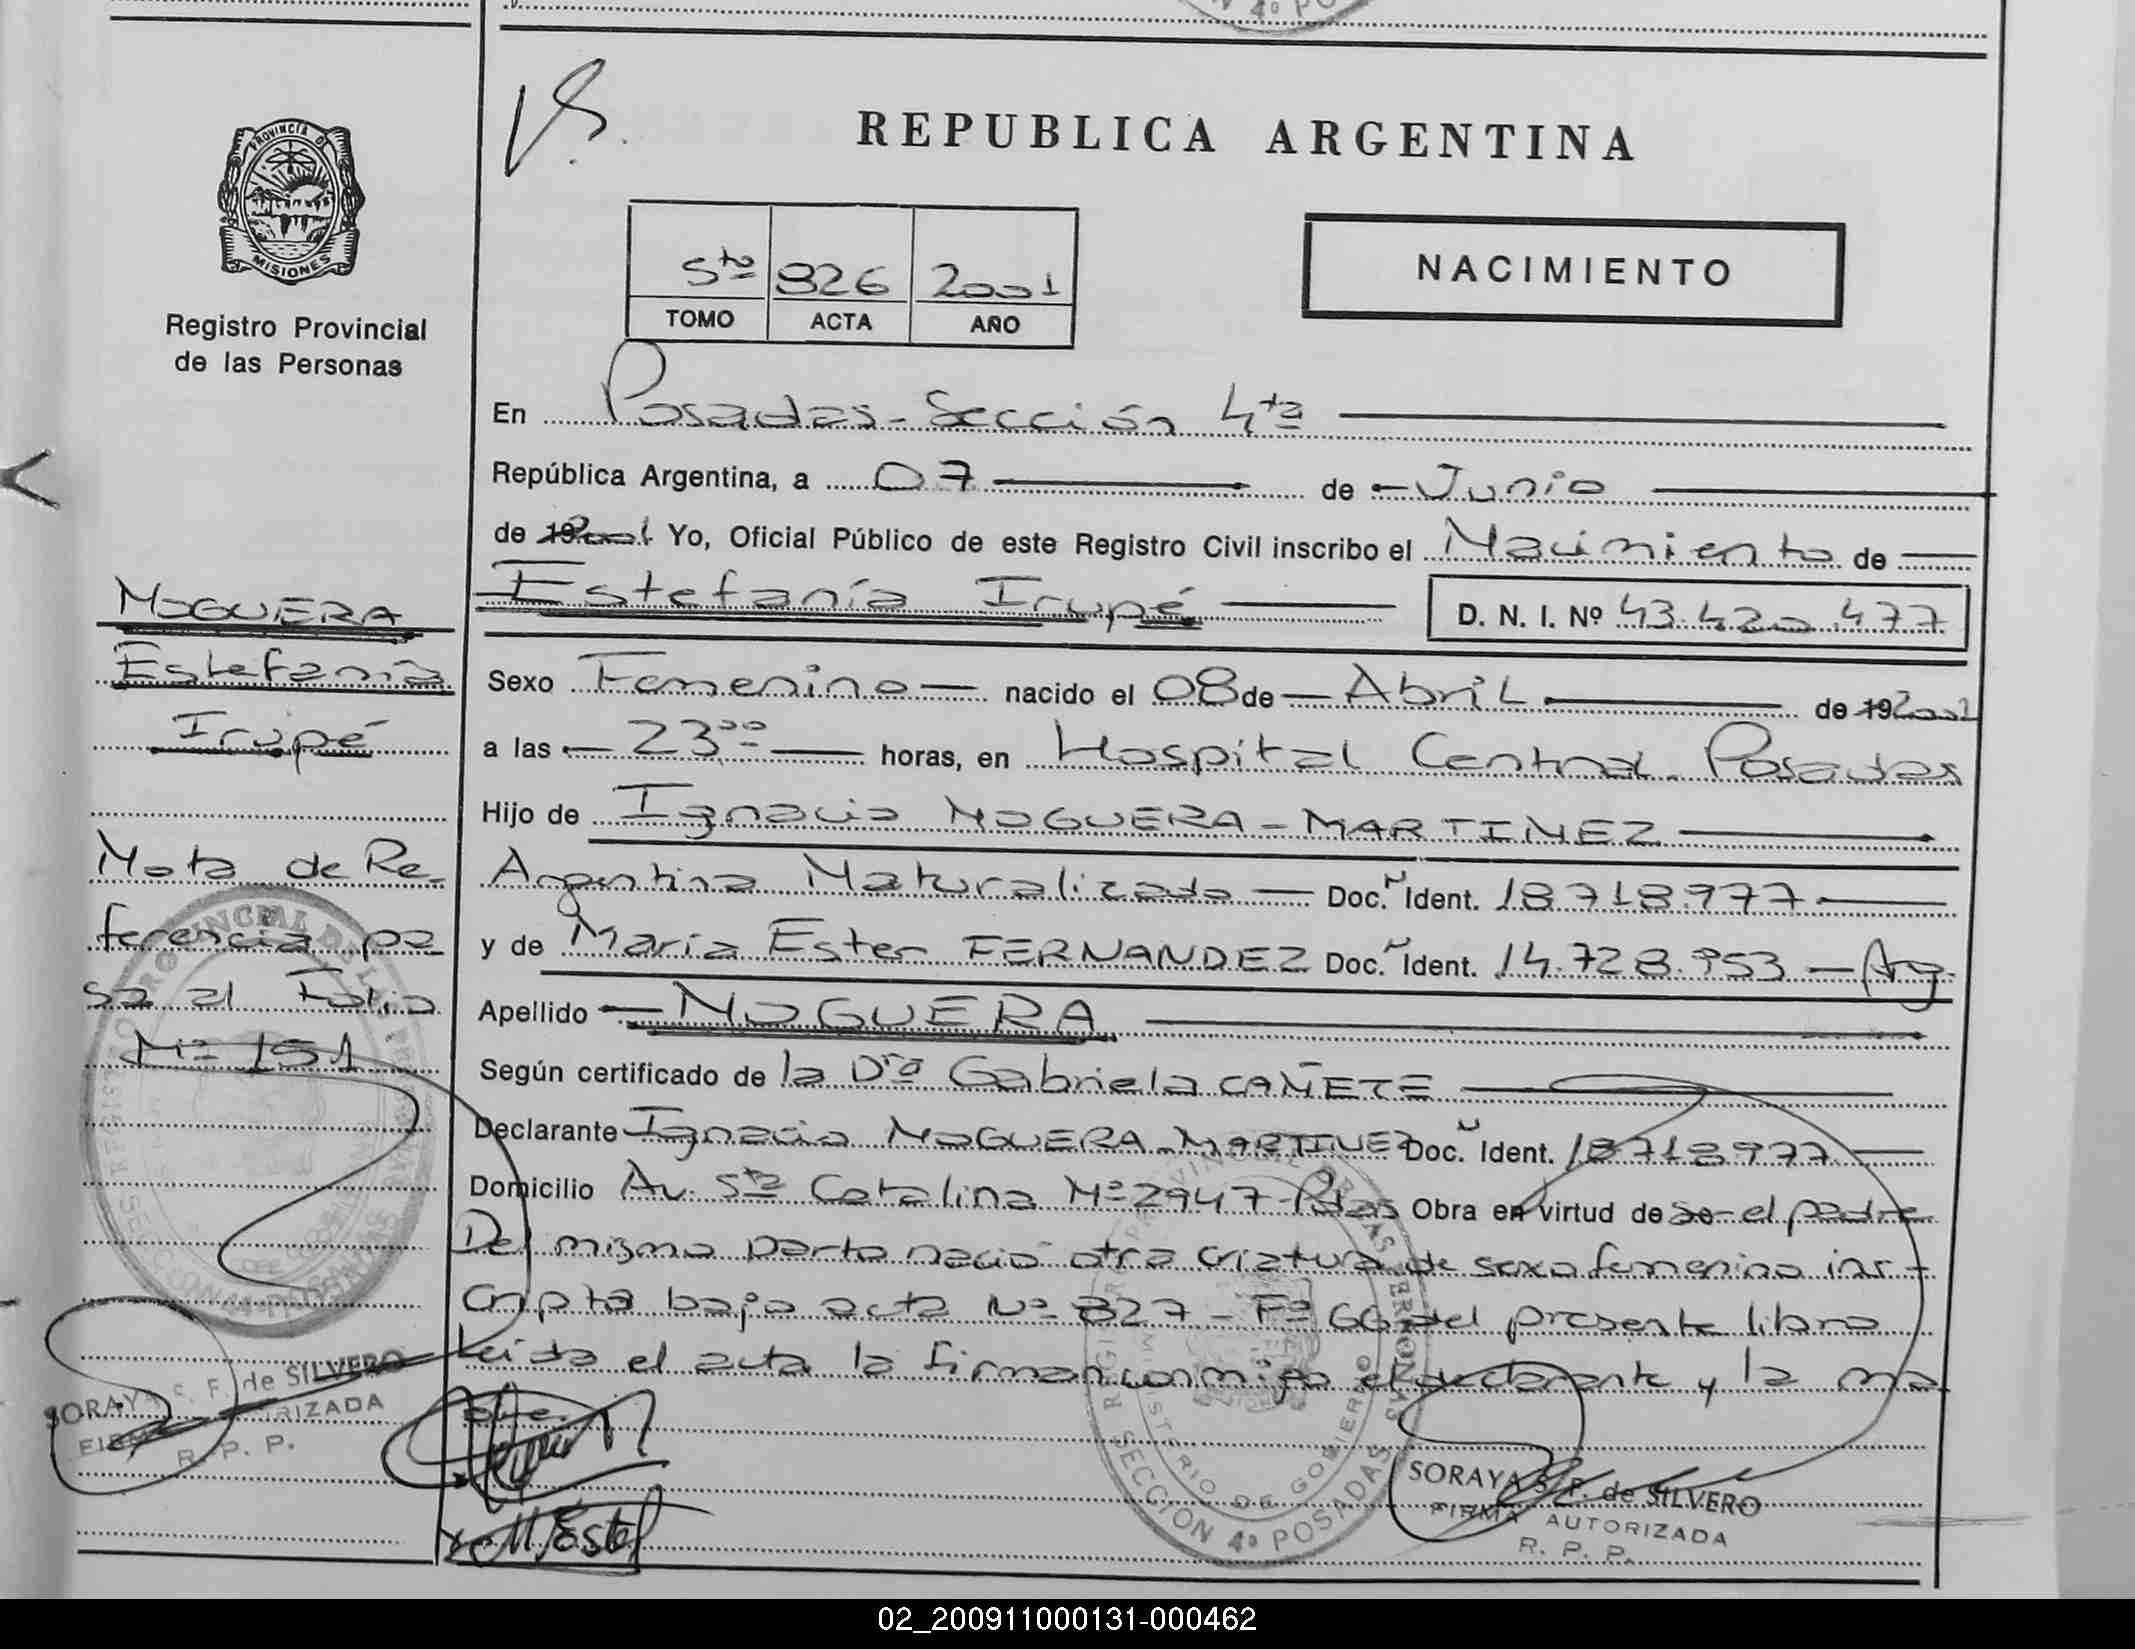 REPUBLICA ARGENTINA
PROVINCIA DE
MISIONES
Registro Provincial
de las Personas
5to 826 2001
TOMO ACTA AÑO
NACIMIENTO
En Posadas - Sección 4ta
República Argentina, a 07 de Junio
de 19 2001 Yo, Oficial Público de este Registro Civil inscribo el Nacimiento de
Estefanía Irupé D. N. I. Nº 43.420.477
Sexo Femenino nacido el 08 de Abril de 19 2001
a las 23.00 horas, en Hospital Central. Posadas
Hijo de Ignacio NOGUERA - MARTINEZ
Argentino Naturalizado Doc. N Ident. 18.718.977
y de María Ester FERNANDEZ Doc. N Ident. 14.728.953 - Arg.
Apellido NOGUERA
Según certificado de la Dra Gabriela CAÑETE
Declarante Ignacio NOGUERA - MARTINEZ Doc. N Ident. 18718977
Domicilio Av. Sta Catalina Nº 2947 - Pdas Obra en virtud de ser el padre
Del mismo parto nació otra criatura de sexo femenino ins-
cripta bajo acta Nº 827 - Fº 66 del presente libro
Leida el acta la firman conmigo el declarante y la ma
dre.
M. Ester
NOGUERA
Estefanía
Irupé
Nota de Re-
ferencia pa-
sa al Folio
Nº 151
SORAYA S. F. de SILVERO
FIRMA AUTORIZADA
R. P. P.
SORAYA S. F. de SILVERO
FIRMA AUTORIZADA
R. P. P.
MINISTERIO DE GOBIERNO
SECCION 4ª POSADAS
02_200911000131-000462